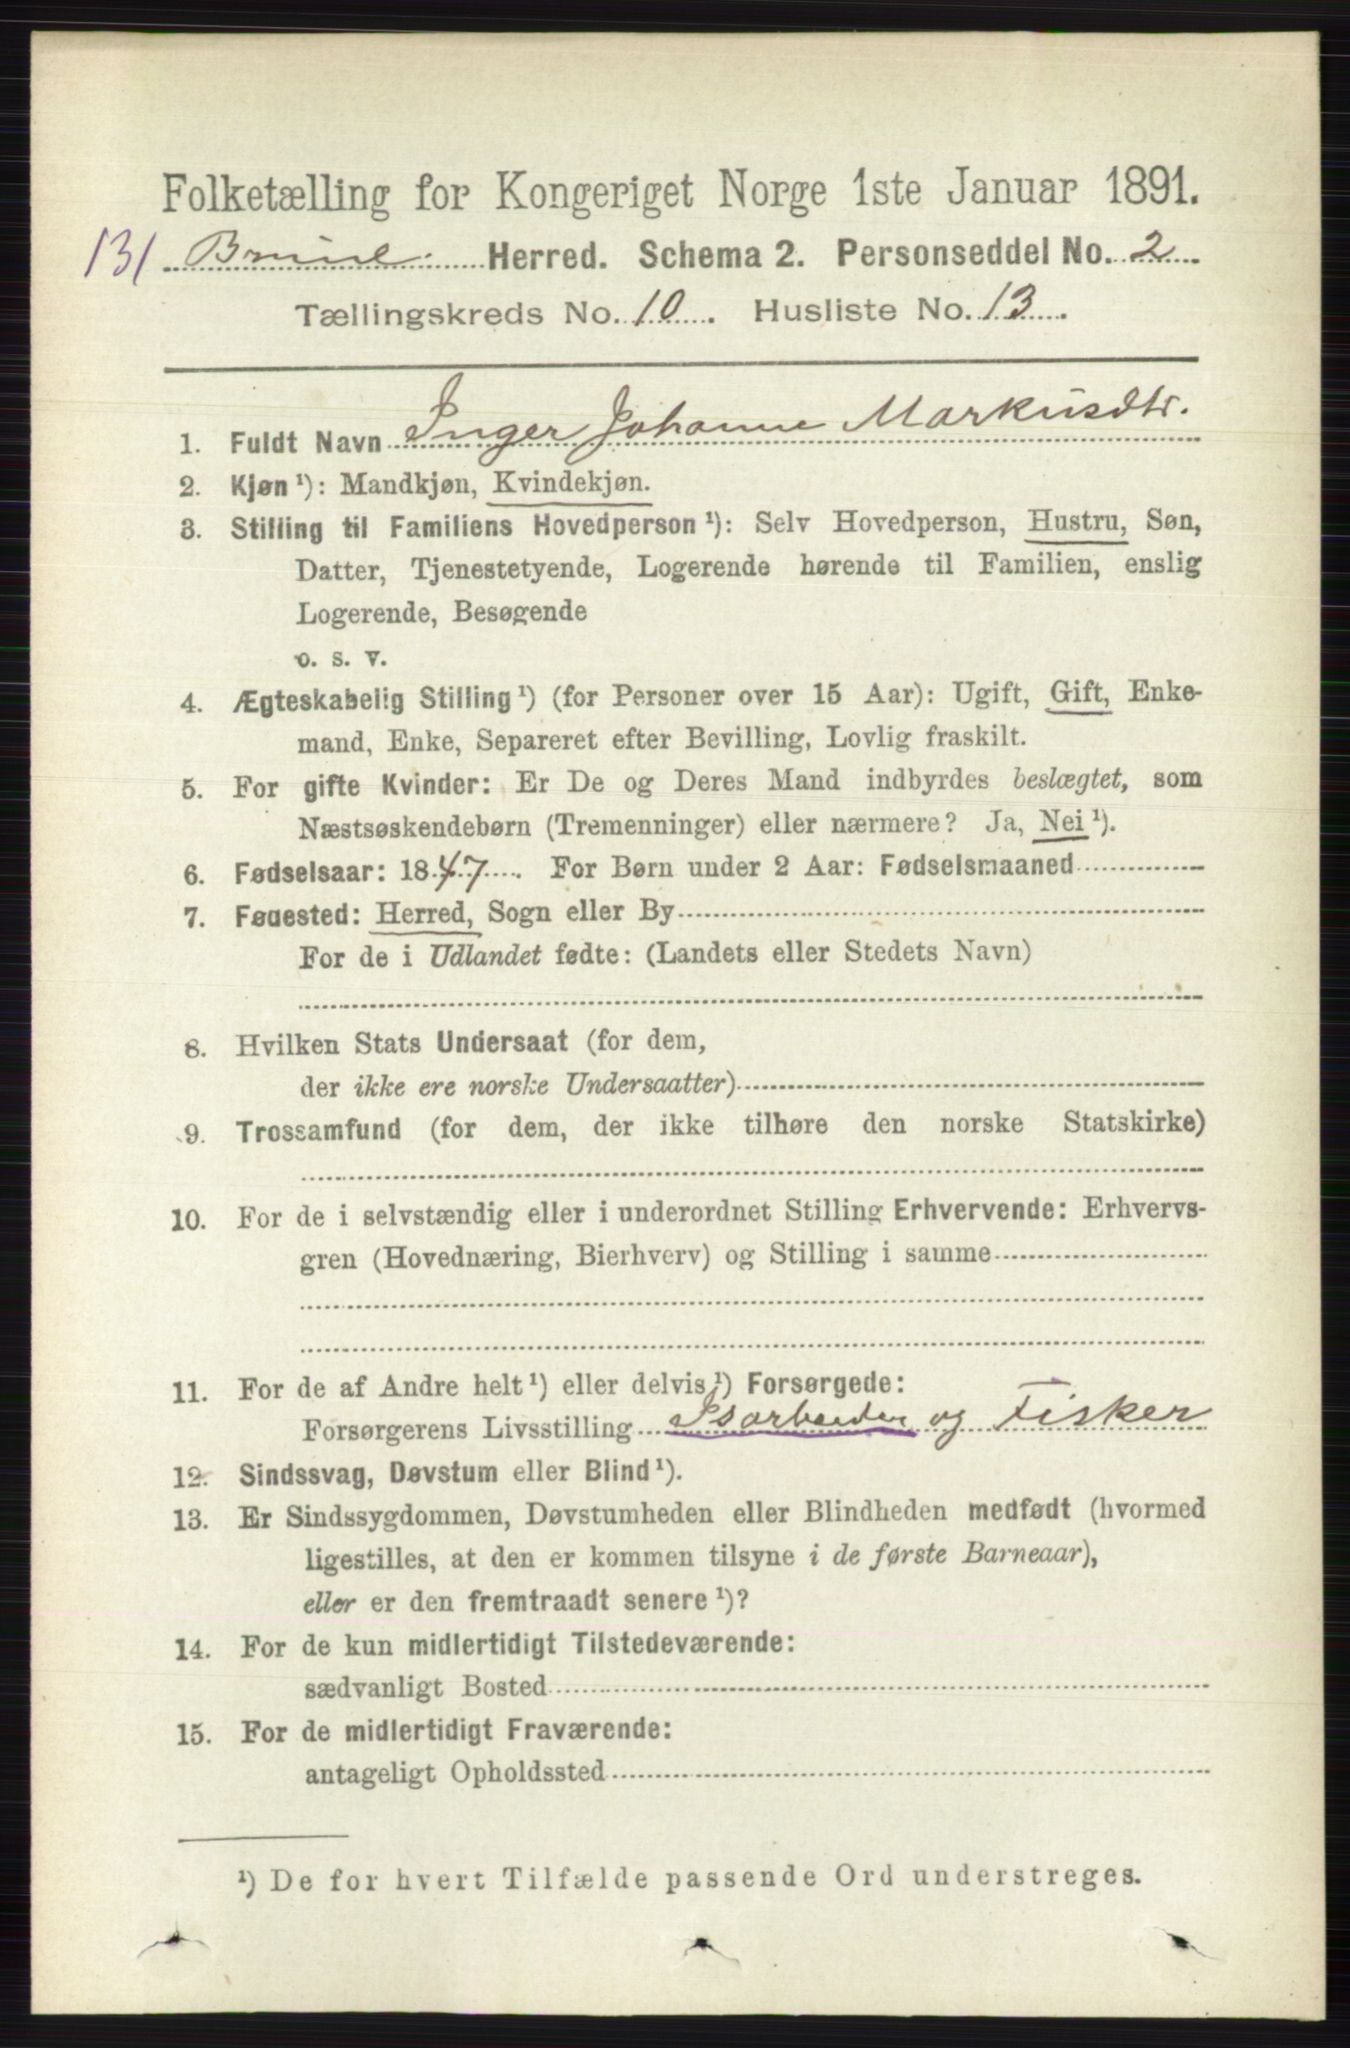 Folketælling for Kongeriget Norge 1ste Januar 1891.
131 Herred. Schema 2. Personseddel No. 2
Tællingskreds No. 10. Husliste No. 13.
1. Fuldt Navn Inger Johanne Markusdtr.
2. Kjøn ¹): Mandkjøn, Kvindekjøn.
3. Stilling til Familiens Hovedperson ¹): Selv Hovedperson, Hustru, Søn,
Datter, Tjenestetyende, Logerende hørende til Familien, enslig
Logerende, Besøgende
o. s. v.
4. Ægteskabelig Stilling ¹) (for Personer over 15 Aar): Ugift, Gift, Enke-
mand, Enke, Separeret efter Bevilling, Lovlig fraskilt.
5. For gifte Kvinder: Er De og Deres Mand indbyrdes beslægtet, som
Næstsøskendebørn (Tremenninger) eller nærmere? Ja, Nei ¹).
6. Fødselsaar: 1847. For Børn under 2 Aar: Fødselsmaaned
7. Føuested: Herred, Sogn eller By
For de i Udlandet fødte: (Landets eller Stedets Navn)
8. Hvilken Stats Undersaat (for dem,
der ikke ere norske Undersaatter)
9. Trossamfund (for dem, der ikke tilhøre den norske Statskirke)
10. For de i selvstændig eller i underordnet Stilling Erhvervende: Erhvervs-
gren (Hovednæring, Bierhverv) og Stilling i samme
11. For de af Andre helt ¹) eller delvis ¹) Forsørgede:
Forsørgerens Livsstilling Isarbeider og Fisker
12. Sindssvag, Døvstum eller Blind ¹).
13. Er Sindssygdommen, Døvstumheden eller Blindheden medfødt (hvormed
ligestilles, at den er kommen tilsyne i de første Barneaar),
eller er den fremtraadt senere ¹)?
14. For de kun midlertidigt Tilstedeværende:
sædvanligt Bosted
15. For de midlertidigt Fraværende:
antageligt Opholdssted
¹) De for hvert Tilfælde passende Ord understreges.